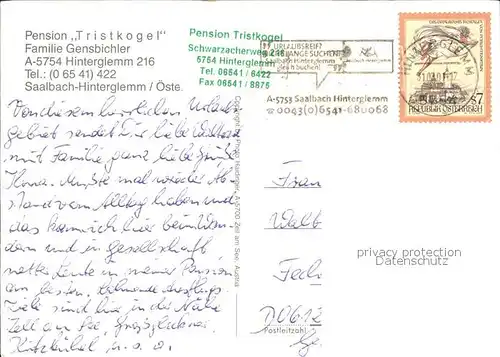 Pension „Tristkogel"
Familie Gensbichler
A-5754 Hinterglemm 216
Tel.: (0 65 41) 422
Saalbach-Hinterglemm / Öste
Pension Tristkogel
Schwarzacherweg 216
5754 Hinterglemm
Tel. 06541 / 6422
Fax 06541 / 8875
URLAUBSREIF?
A-5753 Saalbach Hinterglemm
☎0043(0)6541-68 0068
HINTERGLEMM
S7
REPUBLIK ÖSTERREICH
Von diesem herrlichen Urlaubs-
gebiet sendet Dir liebe Waltraud
mit Familie ganz liebe Grüße
Ilona. Mußte mal wieder Ab-
stand vom Alltag haben und
das kann ich hier beim Wan-
dern und in Gesellschaft
netter Leute in meiner Pension
am besten. Lohnende Ausflugs-
ziele sind hier in der Nähe
Zell am See, Großglockner,
Kitzbühel u.s.w.
A-5700 Zell am See, Austria
Frau
Walt
Fech
D 0612
Postleitzahl
Ge
privacy protection
Datenschutz